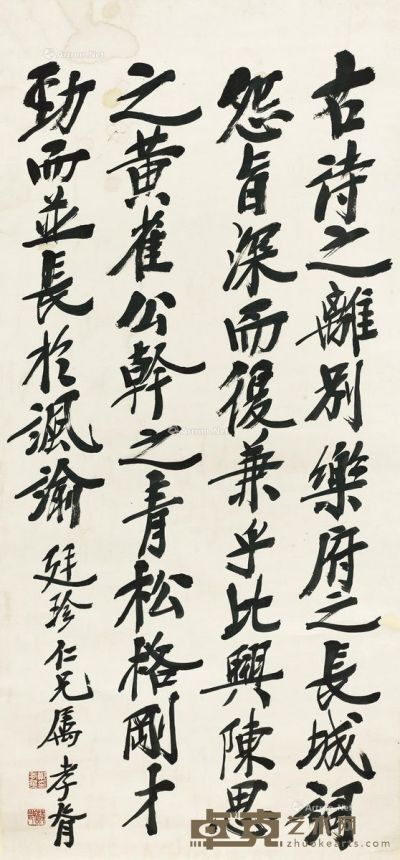 古詩之離別樂府之長城詞
怨旨深而復兼乎比興陳思
之黃雀公幹之青松格剛才
勁而並長於諷諭
廷珍仁兄屬 孝胥
卓克艺术网
www.zhuokearts.com